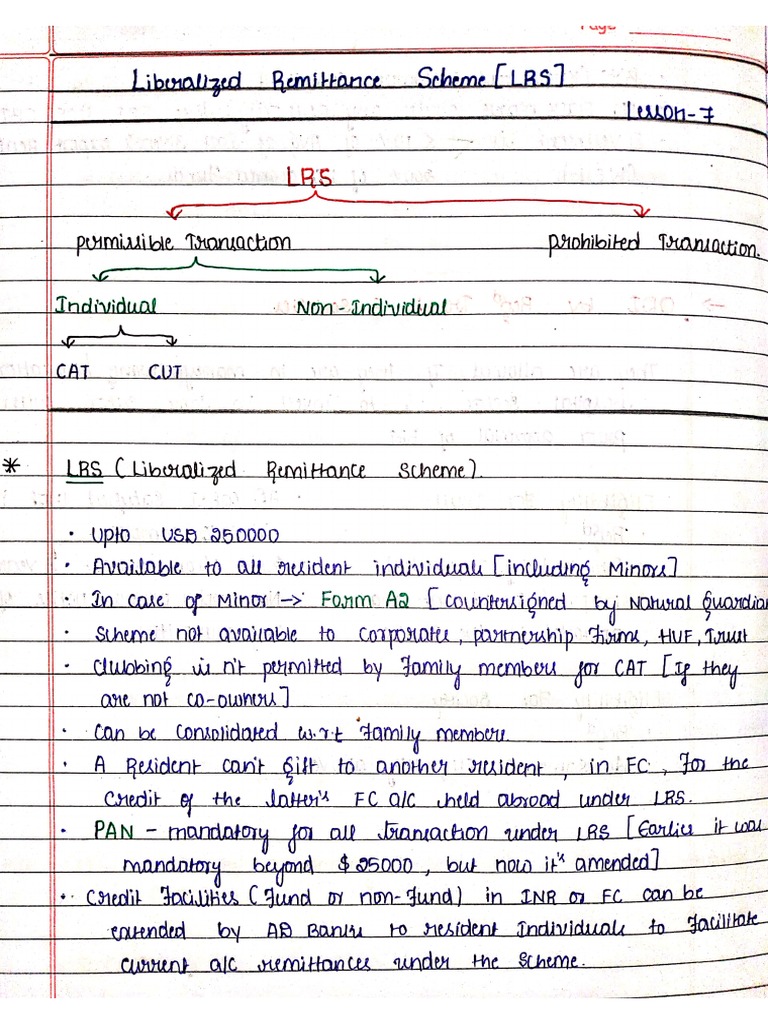 Page
Liberalized Remittance Scheme [LRS]
Lesson-7
LRS
permissible Transaction prohibited Transaction.
Individual Non-Individual
CAT CUT
* LRS (Liberalized Remittance Scheme).
• Upto USD 250000
• Available to all resident individuals [including Minors]
• In case of Minor -> Form A2 [countersigned by Natural Guardian
• Scheme not available to corporates, partnership Firms, HUF, Trust
• Clubbing is n't permitted by Family members for CAT [If they
are not co-owners]
• Can be consolidated w.r.t Family members.
• A Resident can't gift to another resident, in FC, For the
credit of the latter's FC a/c held abroad under LRS.
• PAN - mandatory for all transaction under LRS [Earlier it was
mandatory beyond $ 25000, but now it's amended]
• Credit Facilities (Fund or non-Fund) in INR or FC can be
extended by AD Banks to resident Individuals to Facilitate
current a/c remittances under the Scheme.